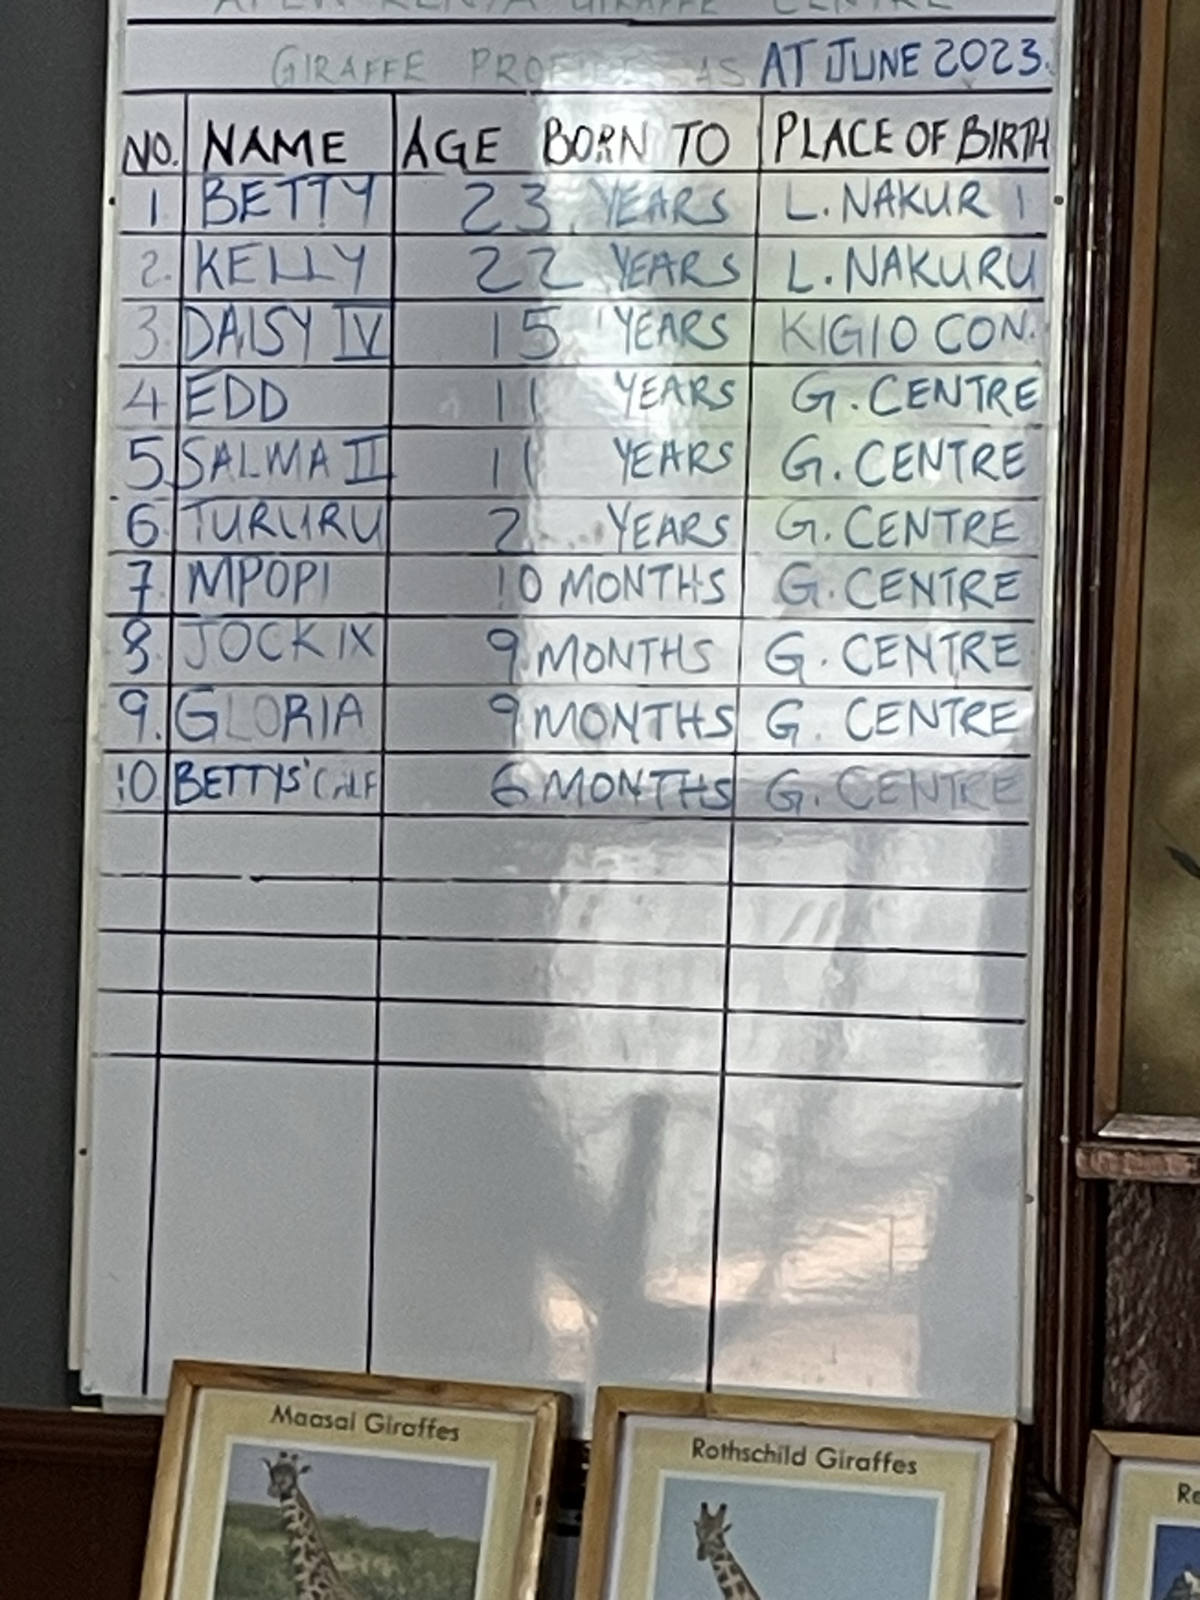 KENYA GIRAFFE CENTRE
GIRAFFE AS AT JUNE 2023.
NO. NAME AGE BORN TO PLACE OF BIRTH
1 BETTY 23 YEARS L. NAKUR
2. KELLY 22 YEARS L. NAKURU
3. DAISY IV 15 YEARS KIGIO CON.
4 EDD 11 YEARS G. CENTRE
5 SALMA II 11 YEARS G. CENTRE
6. TURURU 2 YEARS G. CENTRE
7. MPOPI 10 MONTHS G. CENTRE
8. JOCK IX 9 MONTHS G. CENTRE
9. GLORIA 9 MONTHS G. CENTRE
10 BETTYS' CALF 6 MONTHS G. CENTRE
Maasai Giraffes
Rothschild Giraffes